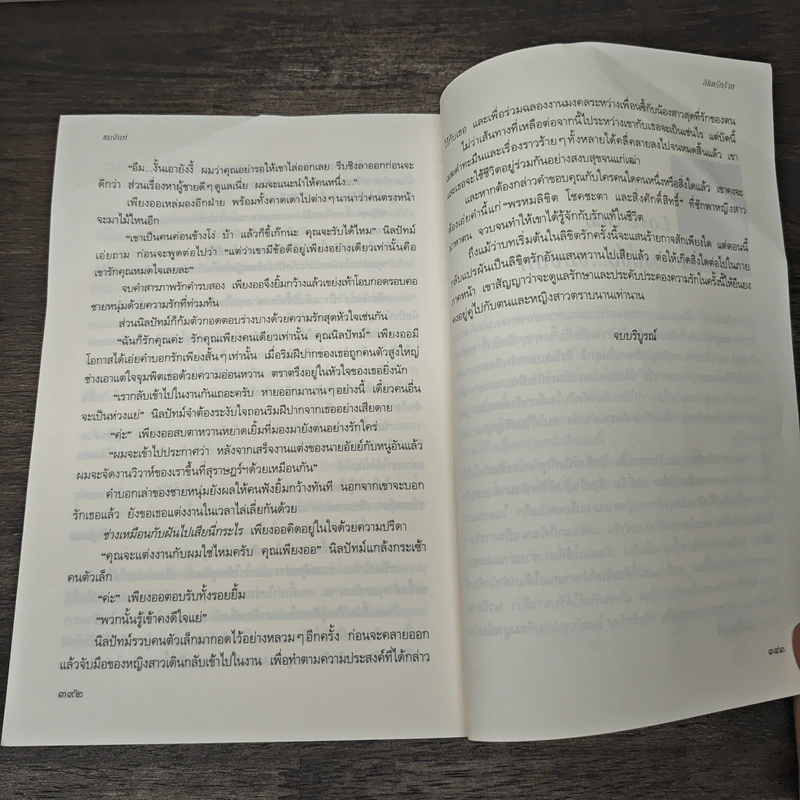 ชมจันท์
"อืม...งั้นเอายังงี้ ผมว่าคุณอย่ารอให้เขาไล่ออกเลย รีบชิงลาออกก่อนจะ
ดีกว่า ส่วนเรื่องหาผู้ชายดีๆดูแลเนี่ย ผมจะแนะนำให้คนหนึ่ง..."
เพียงออเหล่มองอีกฝ่าย พร้อมทั้งคาดเดาไปต่างๆนานาว่าคนตรงหน้า
จะมาไม้ไหนอีก
"เขาเป็นคนค่อนข้างโง่ บ้า แล้วก็ขี้เก๊กนะ คุณจะรับได้ไหม" นิลปัทม์
เอ่ยถาม ก่อนจะพูดต่อไปว่า "แต่ว่าเขามีข้อดีอยู่เพียงอย่างเดียวเท่านั้นคือ
เขารักคุณหมดใจเลยละ"
จบคำสารภาพรักคำรบสอง เพียงออจึงยิ้มกว้างแล้วเขย่งเท้าโอบกอดรอบคอ
ชายหนุ่มด้วยความรักที่ท่วมท้น
ส่วนนิลปัทม์ก็ก้มตัวกอดตอบร่างบางด้วยความรักสุดหัวใจเช่นกัน
"ฉันก็รักคุณค่ะ รักคุณเพียงคนเดียวเท่านั้น คุณนิลปัทม์" เพียงออมี
โอกาสได้เอ่ยคำบอกรักเพียงสั้นๆเท่านั้น เมื่อริมฝีปากของเธอถูกคนตัวสูงใหญ่
ช่างเอาแต่ใจจุมพิตเธอด้วยความอ่อนหวาน ตราตรึงอยู่ในหัวใจของเธอยิ่งนัก
"เรากลับเข้าไปในงานกันเถอะครับ หายออกมานานๆอย่างนี้ เดี๋ยวคนอื่น
จะเป็นห่วงแย่" นิลปัทม์จำต้องระงับใจถอนริมฝีปากจากเธออย่างเสียดาย
"ค่ะ" เพียงออสบตาหวานหยาดเยิ้มที่มองมายังตนอย่างรักใคร่
"ผมจะเข้าไปประกาศว่า หลังจากเสร็จงานแต่งของนายอัยย์กับหนูอันแล้ว
ผมจะจัดงานวิวาห์ของเราขึ้นที่สุราษฎร์ฯด้วยเหมือนกัน"
คำบอกเล่าของชายหนุ่มยังผลให้คนฟังยิ้มกว้างทันที นอกจากเขาจะบอก
รักเธอแล้ว ยังขอเธอแต่งงานในเวลาไล่เลี่ยกันด้วย
ช่างเหมือนกับฝันไปเสียนี่กระไร เพียงออคิดอยู่ในใจด้วยความปรีดา
"คุณจะแต่งงานกับผมใช่ไหมครับ คุณเพียงออ" นิลปัทม์แกล้งกระเซ้า
คนตัวเล็ก
"ค่ะ" เพียงออตอบรับทั้งรอยยิ้ม
"พวกนั้นรู้เข้าคงดีใจแย่"
นิลปัทม์รวบคนตัวเล็กมากอดไว้อย่างหลวมๆอีกครั้ง ก่อนจะคลายออก
แล้วจับมือของหญิงสาวเดินกลับเข้าไปในงาน เพื่อทำตามความประสงค์ที่ได้กล่าว
๓๙๒
ลิขิตรักร้าย
ไว้กับเธอ และเพื่อร่วมฉลองงานมงคลระหว่างเพื่อนซี้กับน้องสาวสุดที่รักของตน
ไม่ว่าเส้นทางที่เหลือต่อจากนี้ไประหว่างเขากับเธอจะเป็นเช่นไร แต่บัดนี้
และเรื่องราวร้ายๆทั้งหลายได้คลี่คลายลงไปจนหมดสิ้นแล้ว เขา
และเธอจะใช้ชีวิตอยู่ร่วมกันอย่างสงบสุขจนแก่เฒ่า
และหากต้องกล่าวคำขอบคุณกับใครคนใดคนหนึ่งหรือสิ่งใดแล้ว เขาคงจะ
ต้องเอ่ยคำนี้แก่ "พรหมลิขิต โชคชะตา และสิ่งศักดิ์สิทธิ์" ที่ชักพาหญิงสาว
มาหาตน จวบจนทำให้เขาได้รู้จักกับรักแท้ในชีวิต
ถึงแม้ว่าบทเริ่มต้นในลิขิตรักครั้งนี้จะแสนร้ายกาจสักเพียงใด แต่ตอนนี้
กลับแปรผันเป็นลิขิตรักอันแสนหวานไปเสียแล้ว ต่อให้เกิดสิ่งใดต่อไปในภาย
ภาคหน้า เขาสัญญาว่าจะดูแลรักษาและประคับประคองความรักในครั้งนี้ให้ยืนยง
คงอยู่คู่ไปกับตนและหญิงสาวตราบนานเท่านาน
จบบริบูรณ์
๓๙๓